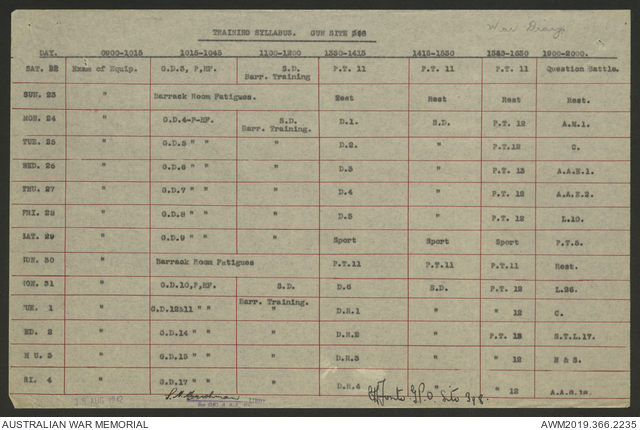 War Diary
TRAINING SYLLABUS. GUN SITE
DAY. 0900-1015 1015-1045 1100-1200 1330-1415 1415-1530 1545-1630 1900-2000.
SAT. 22 Exam of Equip. G.D.3, P,HF. S.D. Barr. Training P.T. 11 P.T. 11 P.T. 11 Question Battle.
SUN. 23 " Barrack Room Fatigues. Rest Rest Rest Rest.
MON. 24 " G.D.4-P-HF. S.D. Barr. Training. D.1. S.D. P.T. 12 A.M.1.
TUE. 25 " G.D.5 " " " D.2. " P.T.12 C.
WED. 26 " G.D.6 " " " D.3 " P.T. 12 A.A.E.1.
THU. 27 " G.D.7 " " " D.4 " P.T. 12 A.A.E.2.
FRI. 28 " G.D.8 " " " D.5 " P.T. 12 L.10.
SAT. 29 " G.D.9 " " " Sport Sport Sport P.T.5.
SUN. 30 " Barrack Room Fatigues P.T.11 P.T.11 P.T.11 Rest.
MON. 31 " G.D.10,P,HF. S.D. Barr. Training. D.6 S.D. P.T. 12 L.26.
TUE. 1 " G.D.12&11 " " " D.R.1 " " 12 C.
WED. 2 " G.D.14 " " " D.R.2 " P.T. 12 S.T.L.17.
THU. 3 " G.D.15 " " " D.R.3 " " 12 N & S.
FRI. 4 " G.D.17 " " " D.R.4 " " 12
AUG 1942
G.P.O. Site
AUSTRALIAN WAR MEMORIAL AWM2019.366.2235